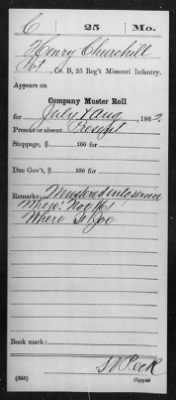 C 25 Mo.
Henry Churchill
Pvt, Co. B, 25 Reg't Missouri Infantry.
Appears on
Company Muster Roll
for July & Aug, 1862.
Present or absent Present
Stoppage, $ 100 for
Due Gov't, $ 100 for
Remarks: Mustered into service
When: Nov
Where St Joe
Book mark:
Copyist.